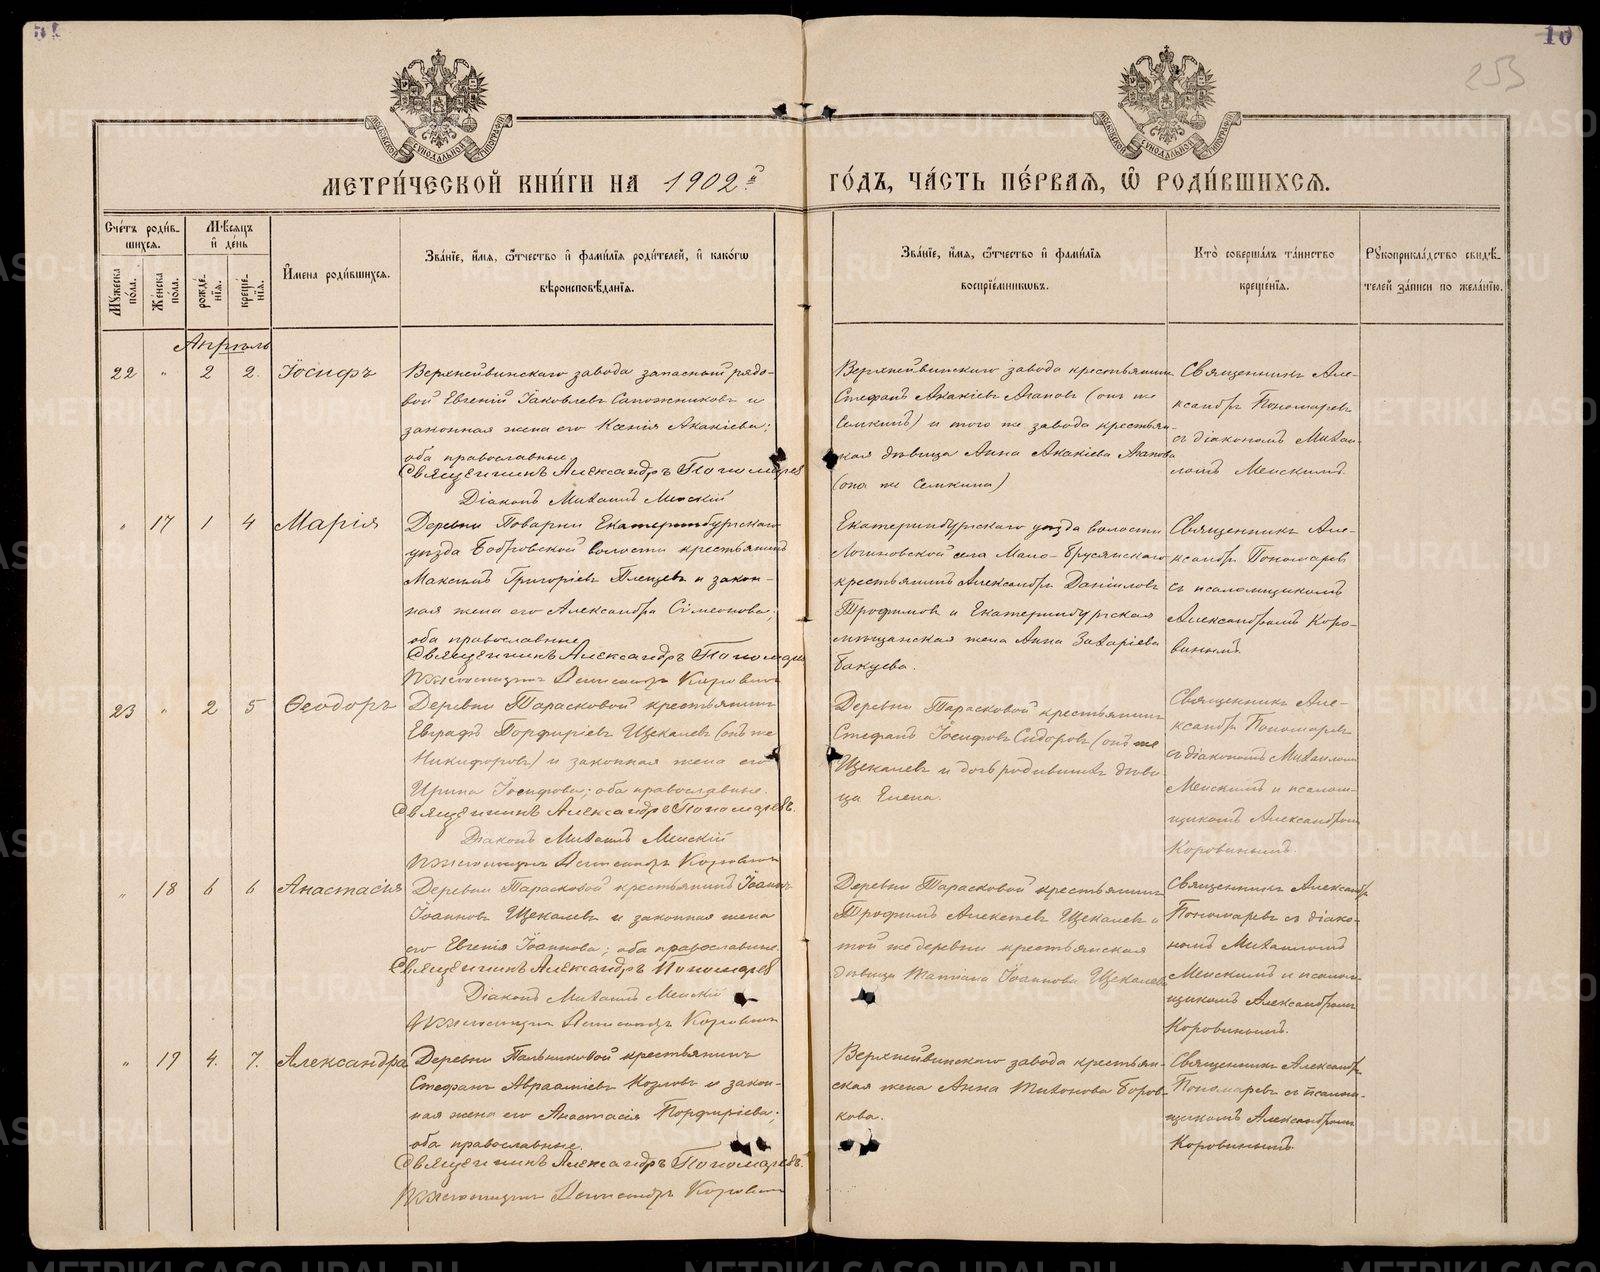 10
253
МЕТРИ́ЧЕСКОЙ КНИ́ГИ НА 1902 й
ГО́ДЪ, ЧА́СТЬ ПЕ́РВАЯ, Ѿ РОДИ́ВШИХСЯ.
Сче́тъ роди́в-
шихся.
Мѣ́сяцъ
и҆ де́нь
Мꙋ́жеска по́ла.
Же́нска по́ла.
рожде́-
нїѧ.
креще́-
нїѧ.
И҆мена роди́вшихся.
Зва́нїе, и҆́мя, ѻ҆́тчество и҆ фами́лїя роди́телей, и҆ како́гѡ
вѣроисповѣ́данїя.
Зва́нїе, и҆́мя, ѻ҆́тчество и҆ фами́лїя
воспрїе́мниковъ.
Кто̀ соверша́лъ та́инство
креще́нїя.
Рꙋкоприкла́дство свидѣ́-
телей за́писи по жела́нїю.
Апрѣль
22 " 2 2. Іосифъ
Верхнейвинскаго завода запасный рядо-
вой Евгеній Іаковлевъ Сапожниковъ и
законная жена его Ксенія Акакіева;
оба православные.
Священникъ Александръ Пономарев
Діаконъ Михаилъ Менскій
Верхнейвинскаго завода крестьянин
Стефанъ Акакіевъ Агаповъ (онъ же
Семкинъ) и того же завода крестьян-
ская дѣвица Анна Акакіева Агапова
(она же Семкина)
Священникъ Але-
ксандръ Пономаревъ
съ діакономъ Михаи-
ломъ Менскимъ
" 17 1 4 Марія
Деревни Поварни Екатеринбургскаго
уѣзда Бобровской волости крестьянинъ
Максимъ Григоріевъ Пленцевъ и закон-
ная жена его Александра Симеонова;
оба православные
Священникъ Александръ Пономарев
Псаломщикъ Александръ Коровинъ
Екатеринбургскаго уѣзда волости
Логиновской села Мало-Брусянскаго
крестьянинъ Александръ Даніиловъ
Трофимовъ и Екатеринбургская
мѣщанская жена Анна Захаріева
Бакуева.
Священникъ Але-
ксандръ Пономаревъ
съ псаломщикомъ
Александромъ Коро-
винымъ
23 " 2 5 Ѳеодоръ
Деревни Тарасковой крестьянинъ
Евграфъ Порфиріевъ Щекалевъ (онъ же
Никифоровъ) и законная жена его
Ирина Іосифова; оба православные.
Священникъ Александръ Пономаревъ.
Діаконъ Михаилъ Менскій
Псаломщикъ Александръ Коровинъ
Деревни Тарасковой крестьянинъ
Стефанъ Іосифовъ Сидоровъ (онъ же
Щекалевъ и дочь родившихъ дѣви-
ца Елена.
Священникъ Але-
ксандръ Пономаревъ
съ діакономъ Михаиломъ
Менскимъ и псалом-
щикомъ Александромъ
Коровинымъ.
" 18 6 6 Анастасія
Деревни Тарасковой крестьянинъ Іоаннъ
Іоанновъ Щекалевъ и законная жена
его Евгенія Іоаннова; оба православные.
Священникъ Александръ Пономарев
Діаконъ Михаилъ Менскій
Псаломщикъ Александръ Коровинъ
Деревни Тарасковой крестьянинъ
Трофимъ Алексѣевъ Щекалевъ и
той же деревни крестьянская
дѣвица Татіана Іоаннова Щекалева
Священникъ Александръ
Пономаревъ съ діако-
номъ Михаиломъ
Менскимъ и псалом-
щикомъ Александромъ
Коровинымъ.
" 19 4. 7. Александра
Деревни Пальниковой крестьянинъ
Стефанъ Авраамієвъ Козловъ и закон-
ная жена его Анастасія Порфиріева;
оба православные.
Священникъ Александръ Пономаревъ.
Псаломщикъ Александръ Коровинъ
Верхнейвинскаго завода крестьян-
ская жена Анна Тихонова Боров-
кова.
Священникъ Александръ
Пономаревъ съ псалом-
щикомъ Александромъ
Коровинымъ